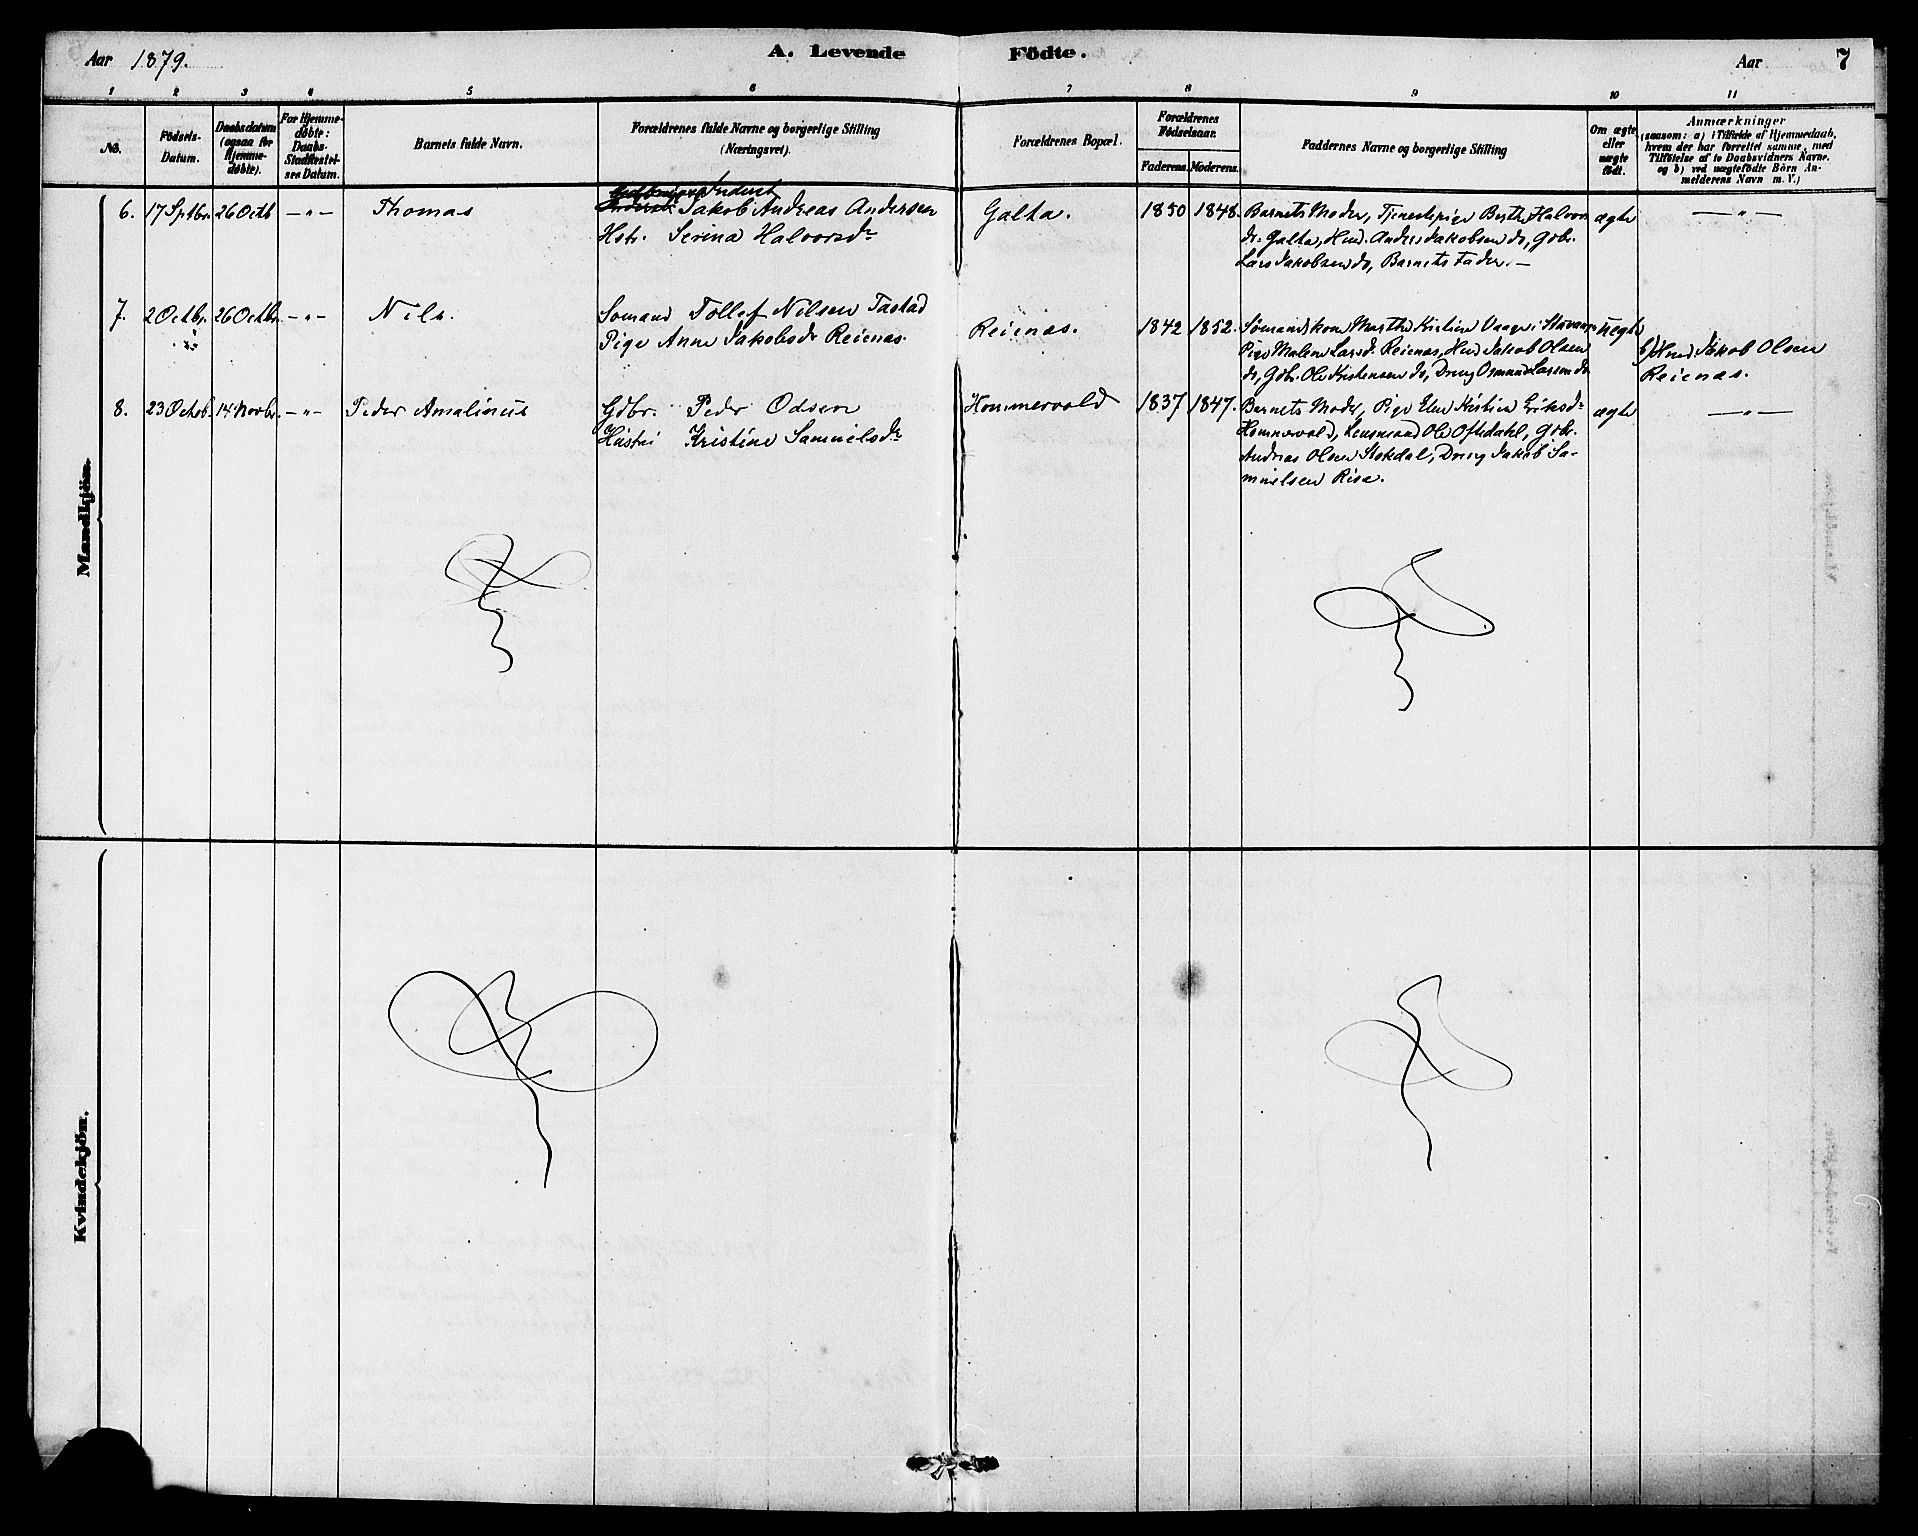 Aar 1879.
A. Levende Födte.
Aar
7
1 2 3 4 5 6 7 8 9 10 11
No.
Födsels-
Datum.
Daabsdatum
(ogsaa for
Hjemme-
døbte).
For Hjemme-
døbte:
Daabs-
Stadfæstel-
ses Datum.
Barnets fulde Navn.
Forældrenes fulde Navne og borgerlige Stilling
(Næringsvei).
Forældrenes Bopæl.
Forældrenes
Fødselsaar.
Faderens. Moderens.
Faddernes Navne og borgerlige Stilling
Om ægte
eller
uægte
født.
Anmærkninger
(saasom: a) i Tilfælde af Hjemmedaab,
hvem der har forrettet samme, med
Tilføielse af to Daabsvidners Navne.
og b) ved uægtefødte Börn An-
melderens Navn m. V.)
Mandkjön.
6. 17 Sptbr. 26 Octb — " — Thomas
Jakob Andreas Andersen
Hstr. Serina Halvorsdr
Galta.
1850 1848.
Barnets Moder, Tjenestepige Berthe Halvors
dr. Galta, Hmd. Anders Jakobsen do, Gdbr.
Lars Jakobsen do, Barnets Fader. —
ægte
— " —
7. 2 Octbr. 26 Octbr. — " — Nils.
Sømand Tollef Nilsen Tastad
Pige Anne Jakobsdr Reienæs.
Reienæs.
1842 1852.
Sømandskone Marthe Kristine Vaage i Stavanger
Pige Malene Larsdr Reienæs, Hmd Jakob Olsen
do, Gdbr. Ole Kristensen do, Dreng Osmund Larsen do
uegte
b) Hmd Jakob Olsen
Reienæs.
8. 23 Octob. 14 Novbr. — " — Peder Amalinus
Gdbr. Peder Odsen
Hustru Kristine Samuelsdr
Hommervold
1837 1847.
Barnets Moder, Pige Elen Kristine Eriksdr
Hommervold, Lensmand Ole Oftedahl, Gdbr.
Andreas Olsen Stokdal, Dreng Jakob Sa-
muelsen Risa.
ægte
— " —
Kvindekjön.